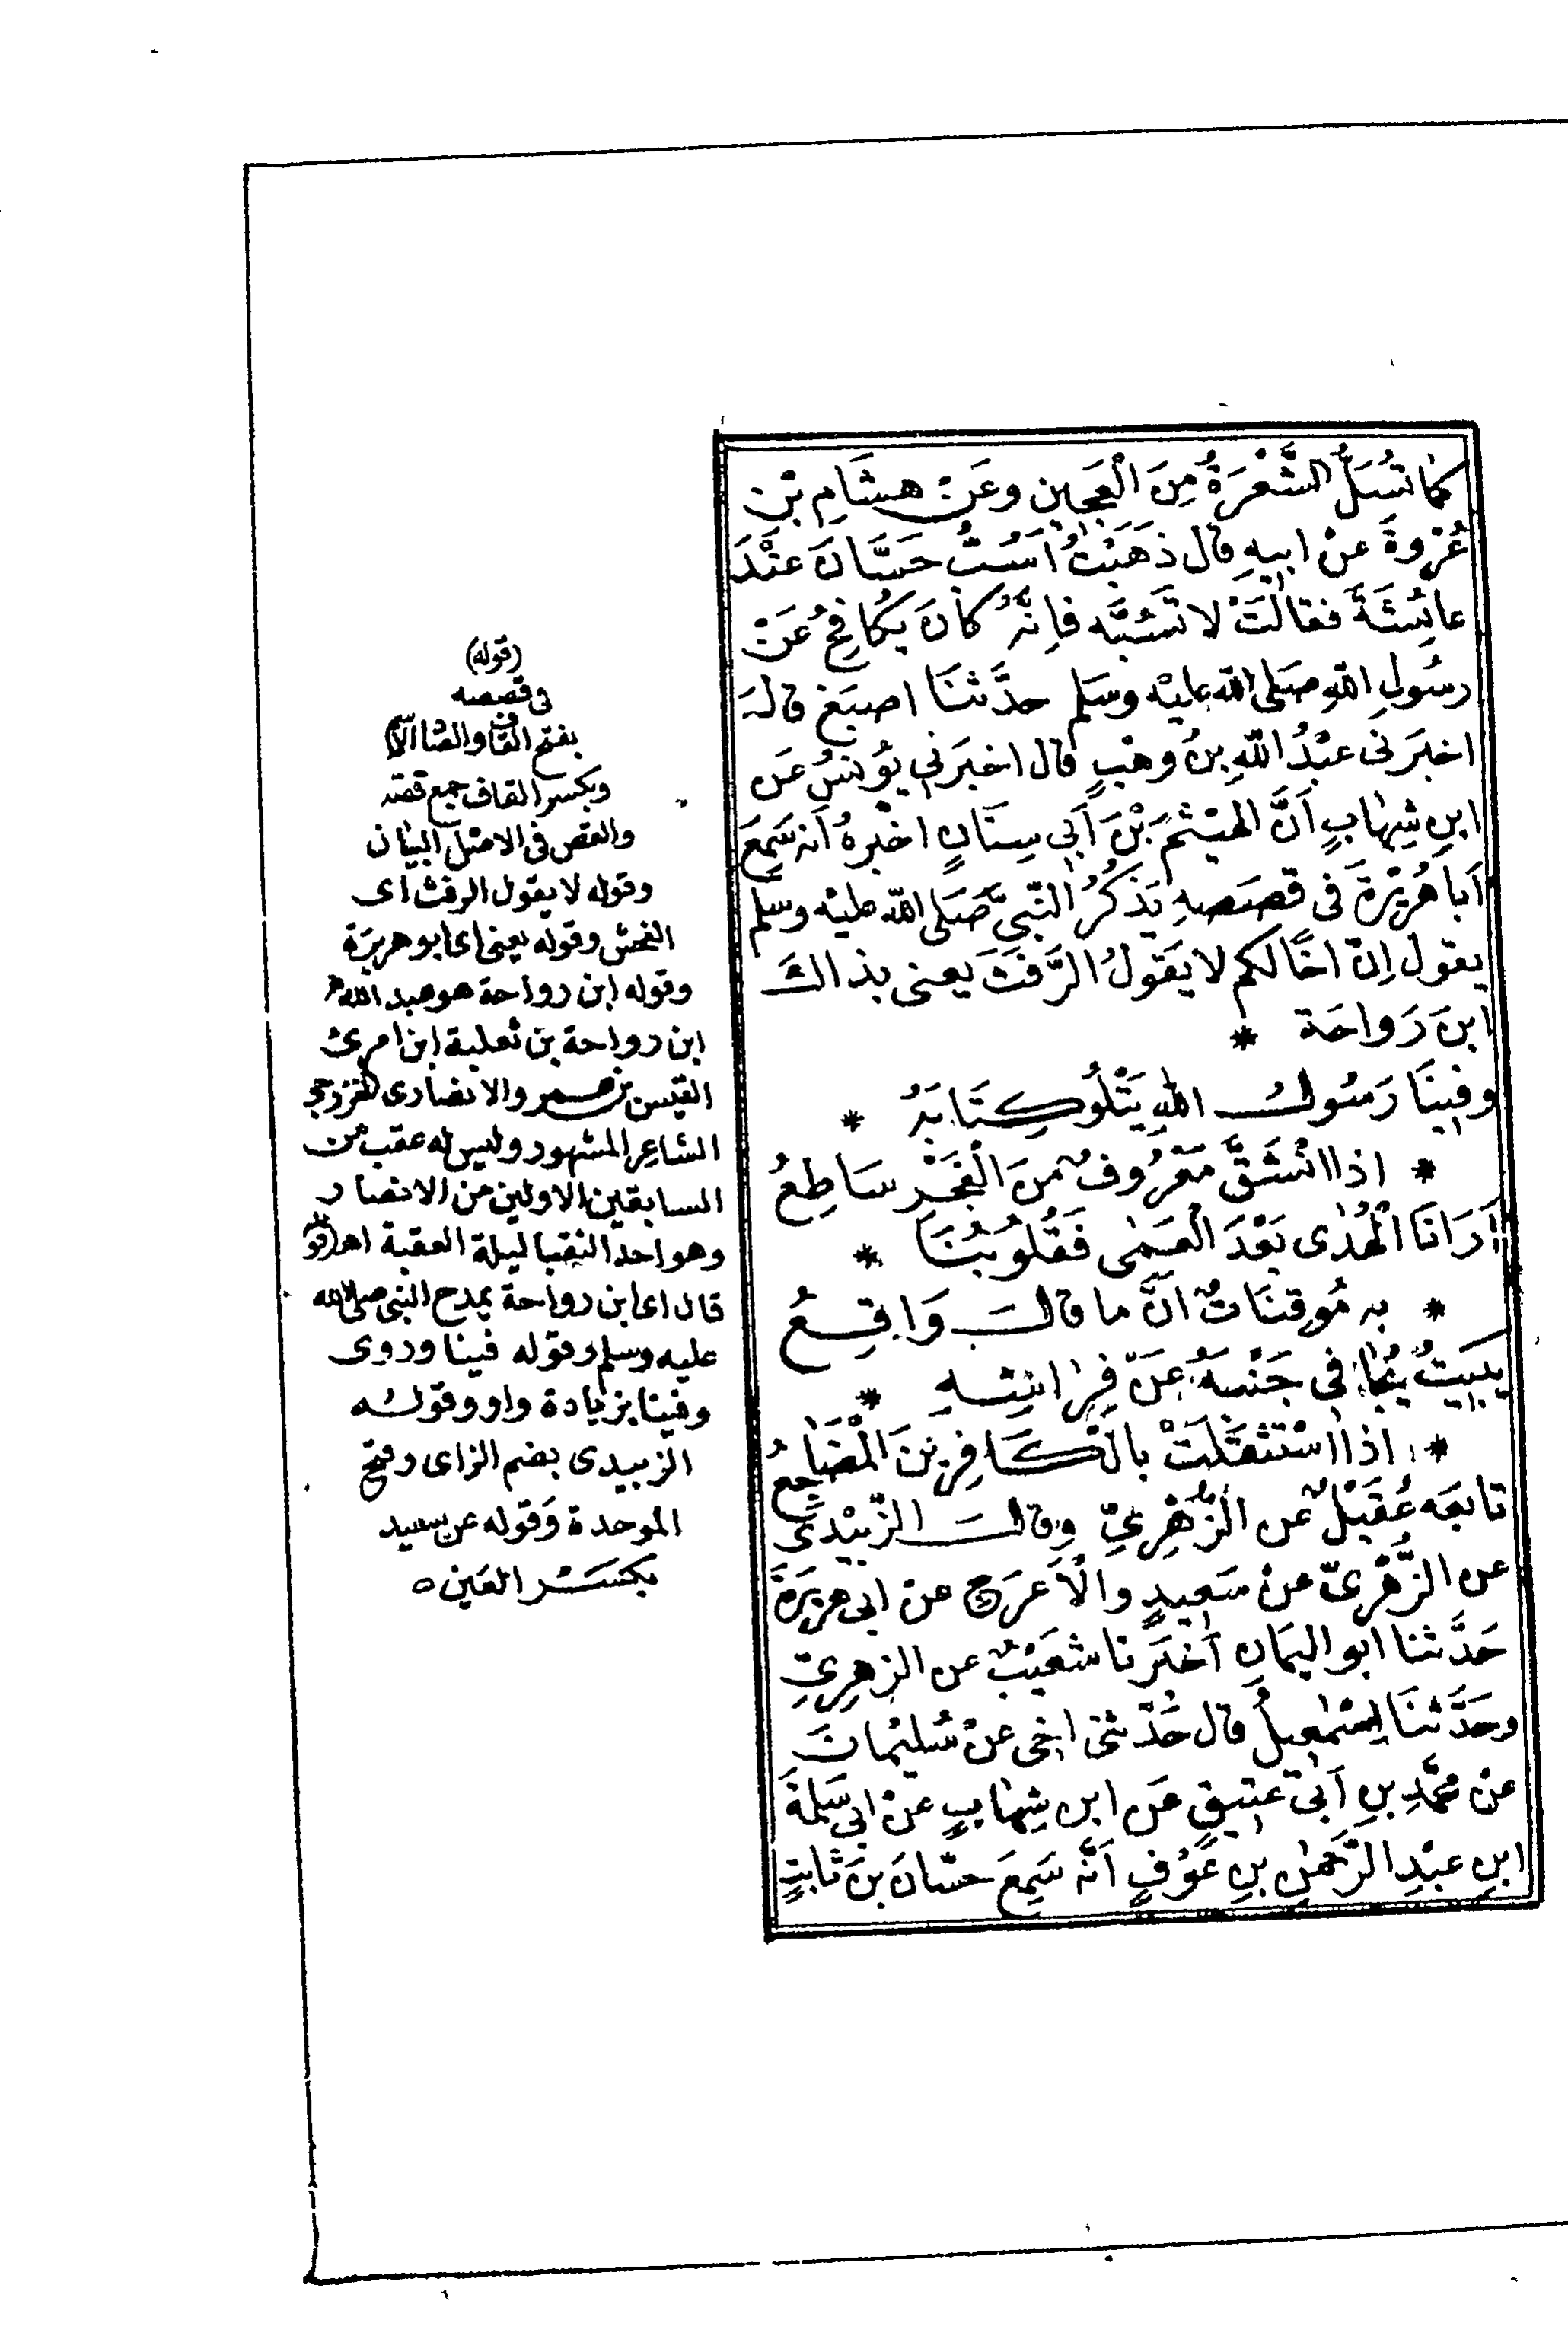 كما تُسَلُّ الشَّعْرَةُ مِنَ الْعَجِينِ وعَنْ هشَامِ بْنِ
عُرْوةَ عنْ ابيهِ قال ذَهَبْتُ اَسُبُّ حَسَّانَ عنْدَ
عائشَةَ فقالَتْ لا تَسُبَّه فاِنَّهُ كانَ يُكافِحُ عَنْ
رسُولِ اللهِ صَلى الله عليْه وسَلم حدَّثنَا اصبَغ قالَ
اخبَرَنى عبْدُ اللهِ بنُ وهْبٍ قال اخبَرَنى يُونسُ عَن
ابنِ شِهَابٍ اَنَّ الهيْثمَ بْنَ اَبى سِنَانٍ اخْبَرهُ اَنه سَمِعَ
اَبا هُرَيْرةَ فى قصَصهِ يَذكُرُ النّبىَّ صَلى الله عليْه وسلّم
يقول اِنّ اخًا لكم لا يَقولُ الرَّفَثَ يعنى بذالكَ
ابنَ رَواحَة *
وفينَا رَسُولُ اللهِ يَتْلُو كِتَابَهُ *
* اذا انْشَقَّ مَعْرُوفٌ منَ الْفَجْرِ سَاطِعُ
اَرَانَا الْهُدٰى بَعْدَ الْعَمٰى فَقُلُوبُنَا *
* به مُوقنَاتٌ انَّ ما قالَ وَاقِعُ
يَبيتُ يُجافى جَنْبَهُ عَنْ فِرَاشِهِ *
* اذا اسْتثقَلَتْ بالْكَافِرينَ الْمَضَاجِعُ
تابعَه عُقَيْلٌ عن الزّهْرِىّ وقالَ الزّبيْدىُّ
عن الزُّهْرىّ عنْ سَعيدٍ والْاَعرَجِ عن ابى هريرَةَ
حَدَّثنا ابو اليمَانِ اَخبَرنا شعَيْبٌ عن الزهرِىّ
وحَدَّثنَا اِسْمٰعيلُ قال حَدّثنى اخى عنْ سُليْمانَ
عنْ محمَّدِ بنِ اَبى عتيقٍ عَن ابن شِهَابٍ عنْ ابى سَلمةَ
ابنِ عبْدِ الرَّحمٰنِ بنِ عَوْفٍ اَنّه سَمِعَ حسّانَ بنَ ثابتٍ
(قوله)
فى قصصه
بفتح القاف والصاد
وبكسر القاف جمع قصة
والقص فى الاصل البيان
وقوله لا يقول الرفث اى
الفحش وقوله يعنى اى ابو هريرة
وقوله ابن رواحة هو عبد الله
ابن رواحة بن ثعلبة ابن امرئ
القيس بن عمرو الانصارى الخزرجى
الشاعر المشهور وليس له عقب من
السابقين الاولين من الانصار
وهو احد النقبا ليلة العقبة اهـ
قال اى ابن رواحة يمدح النبى صلى الله
عليه وسلم وقوله فينا وروى
وفينا بزيادة واو وقوله
الزبيدى بضم الزاى وفتح
الموحدة وقوله عن سعيد
بكسر العين